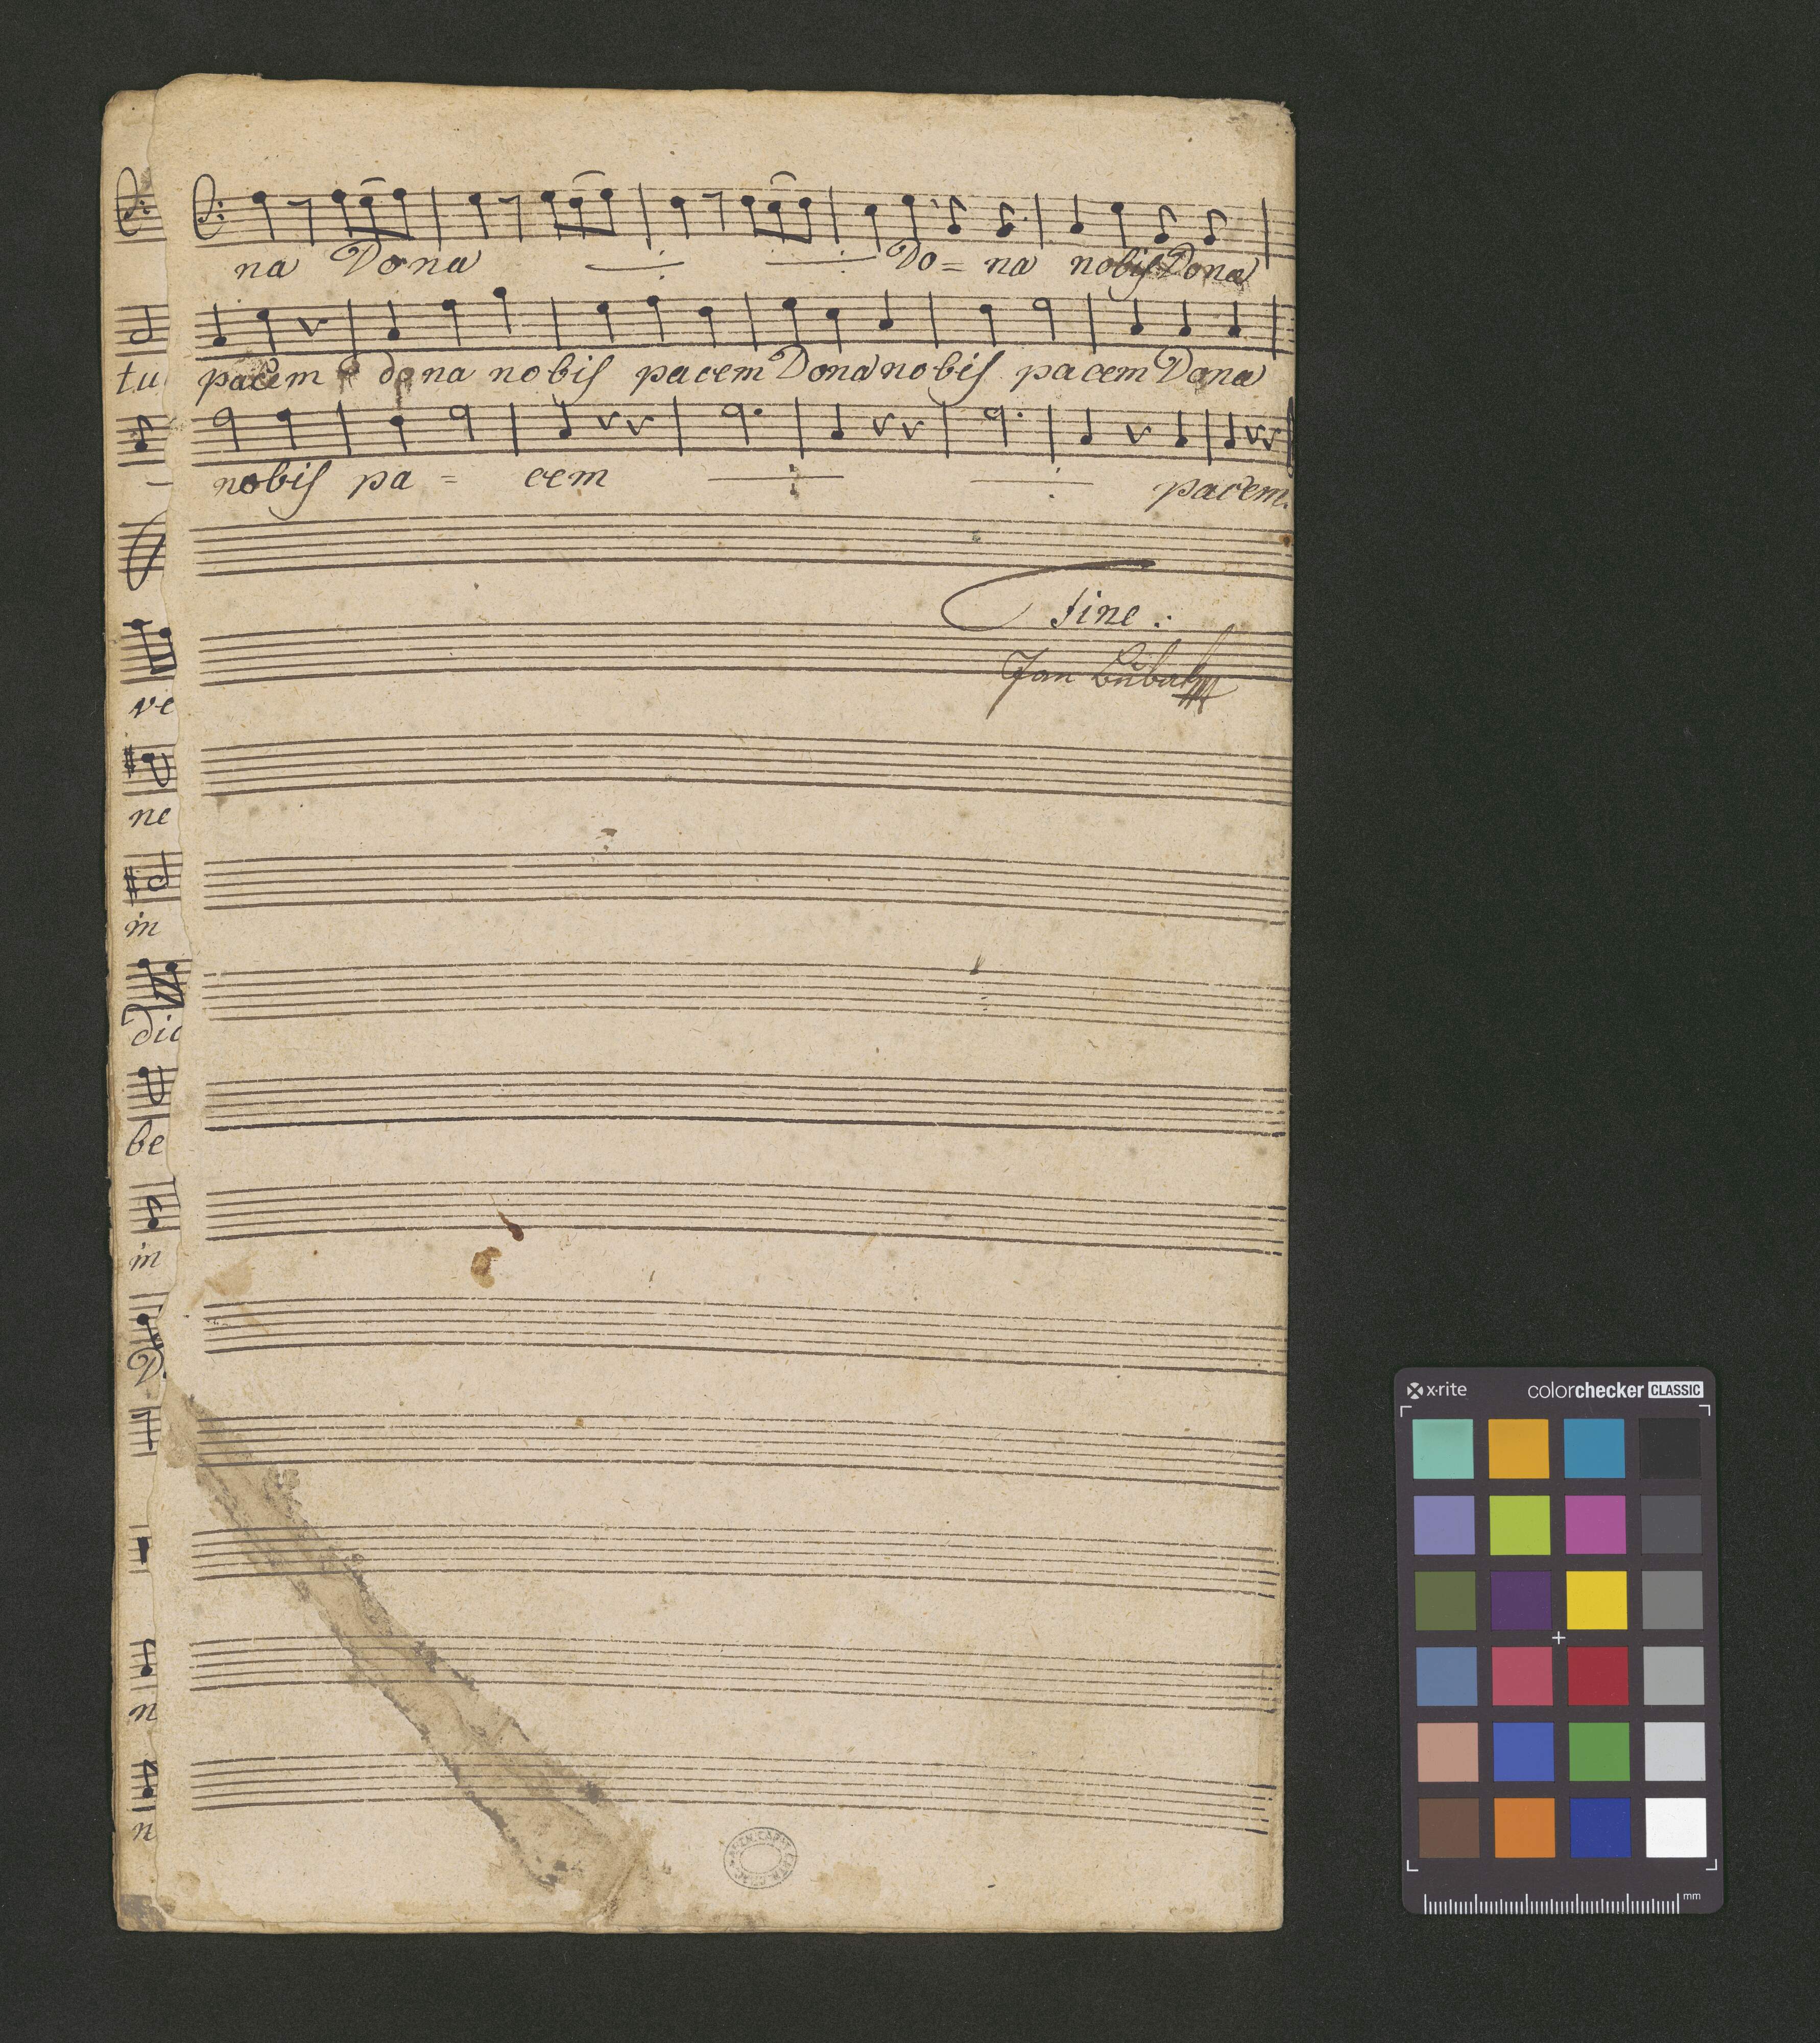 na Dona Do= na nobis Dona
pacem dona nobis pacem Dona nobis pacem Dona
nobis pa = cem pacem.
Fine .:
Jan
tu
ve
ne
in
dic
be
in
D.
n
n
x·rite colorchecker CLASSIC
mm